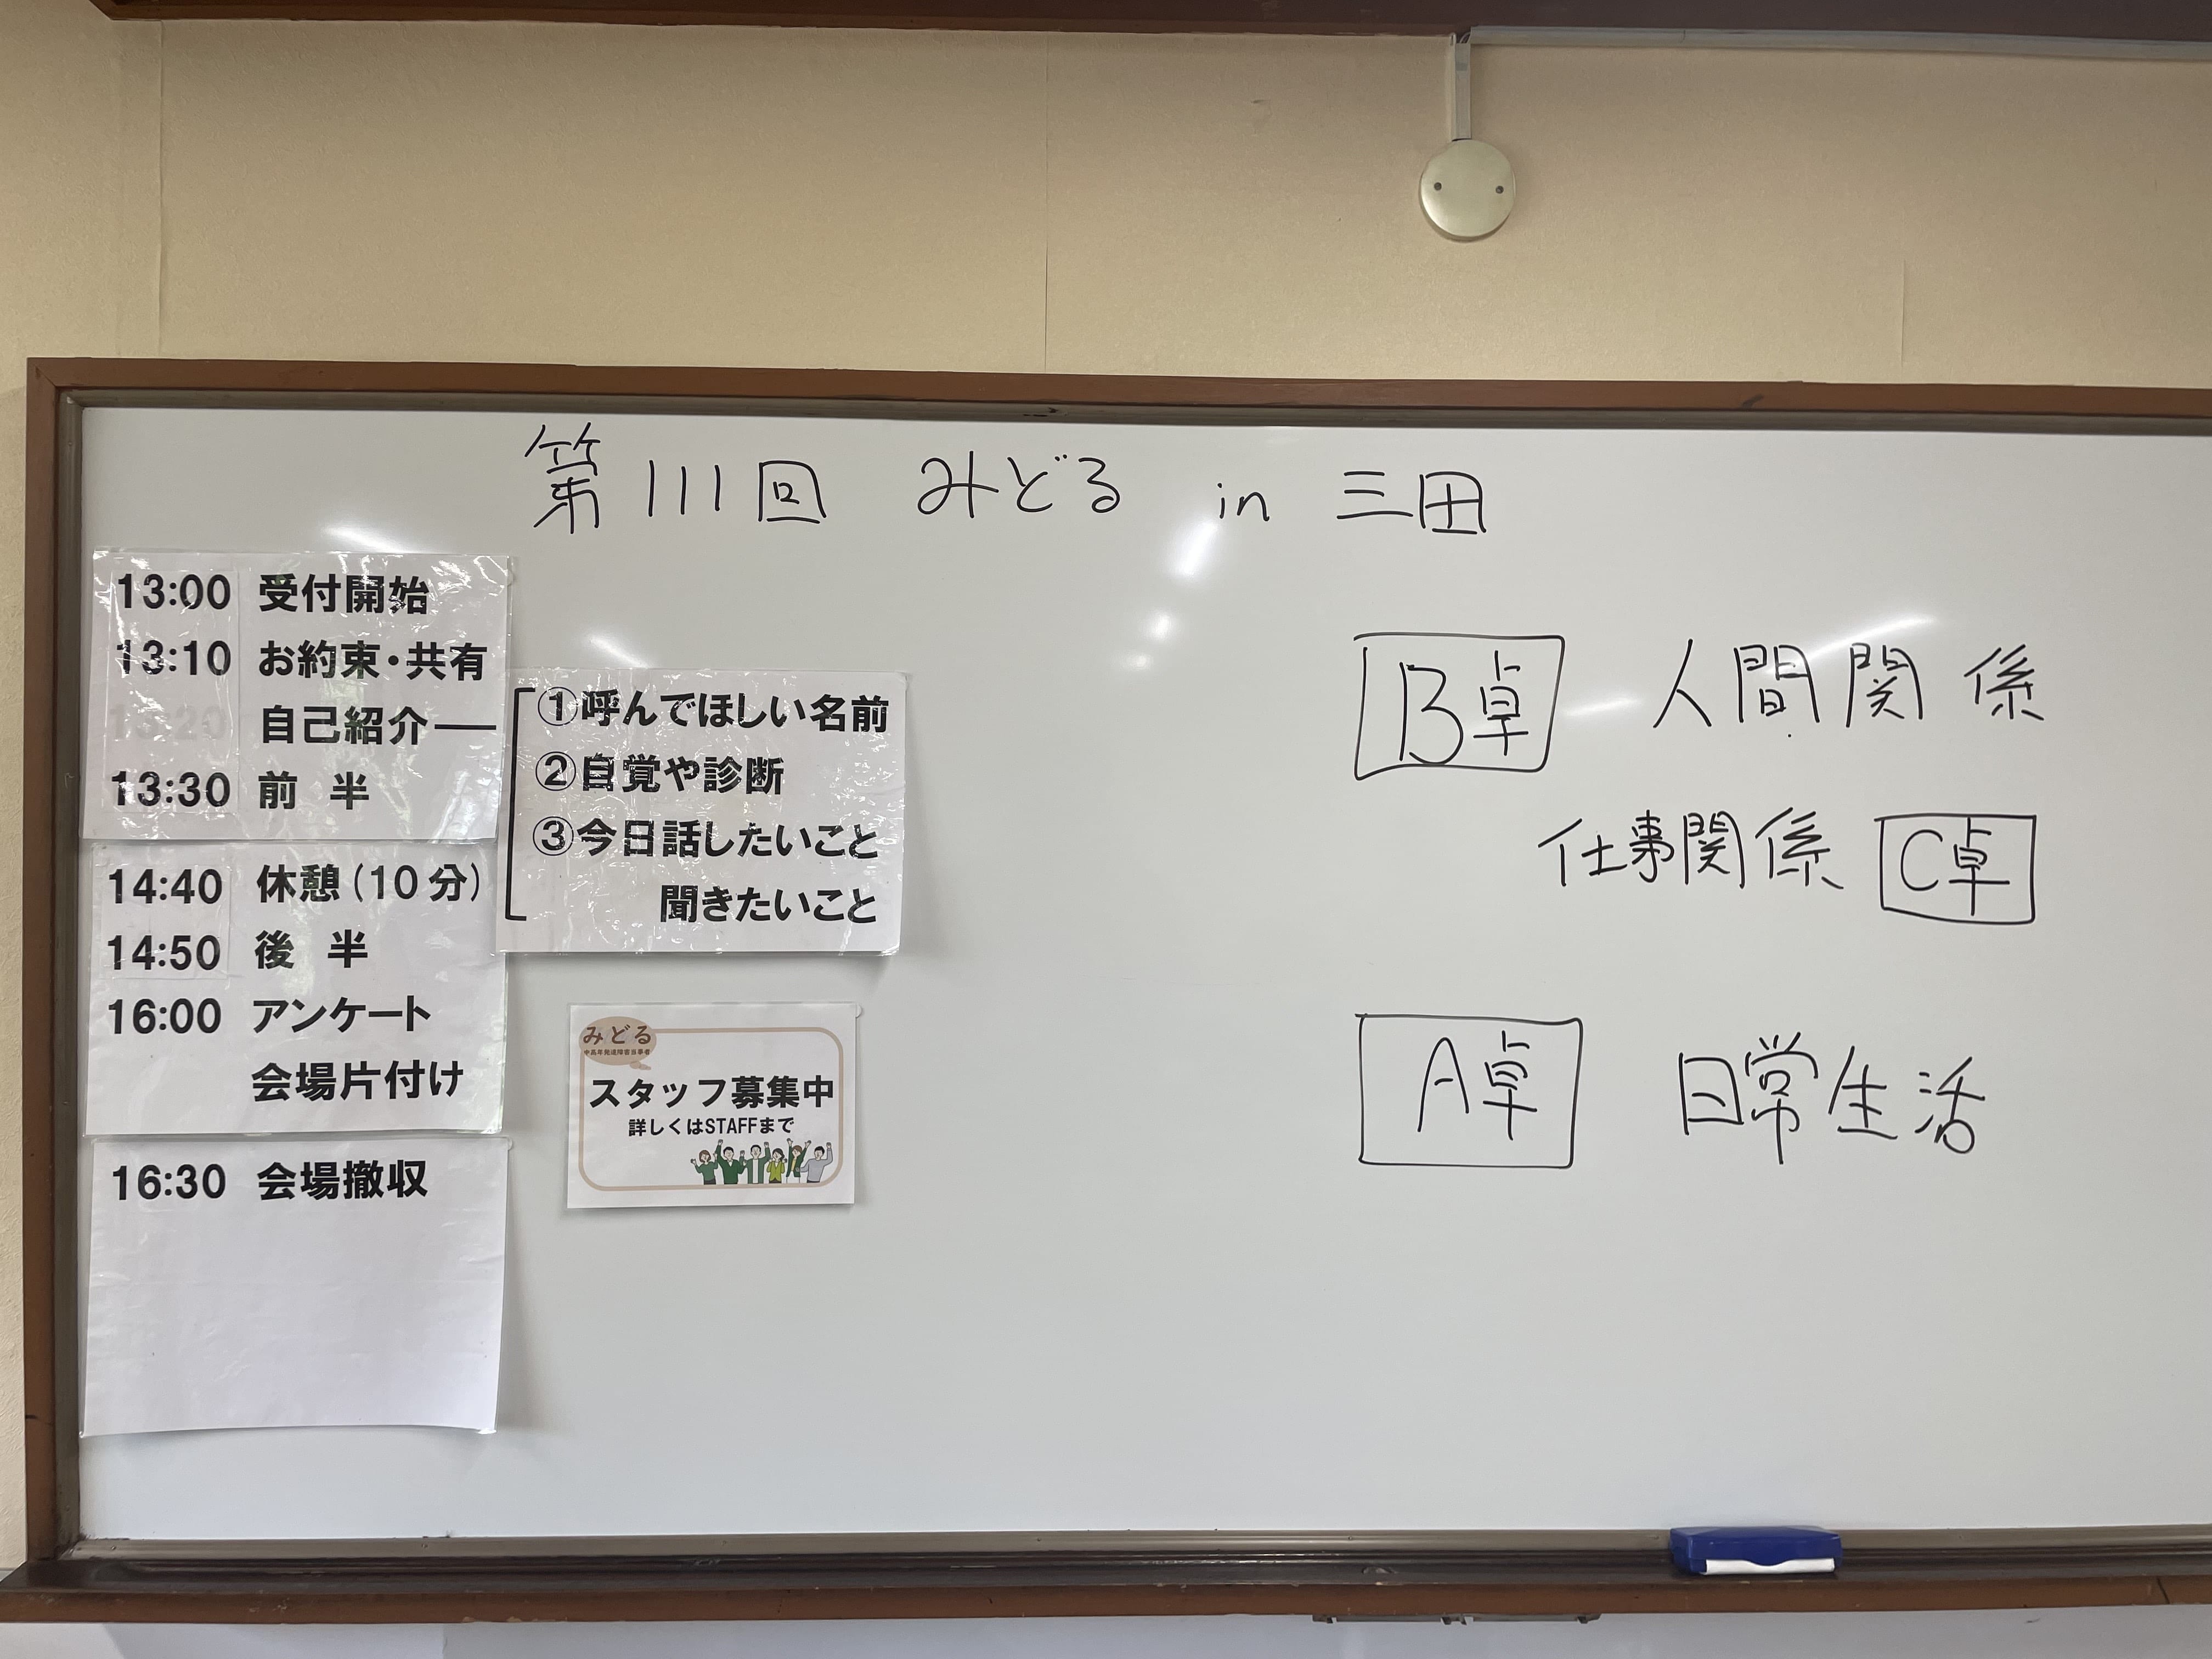 第111回 みどる in 三田
13:00 受付開始
13:10 お約束・共有
13:20 自己紹介―
13:30 前 半
14:40 休憩(10分)
14:50 後 半
16:00 アンケート
会場片付け
16:30 会場撤収
①呼んでほしい名前
②自覚や診断
③今日話したいこと
聞きたいこと
みどる
中高年発達障害当事者
スタッフ募集中
詳しくはSTAFFまで
B卓 人間関係
仕事関係 C卓
A卓 日常生活